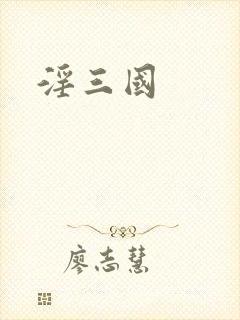 淫三國
廖志慧